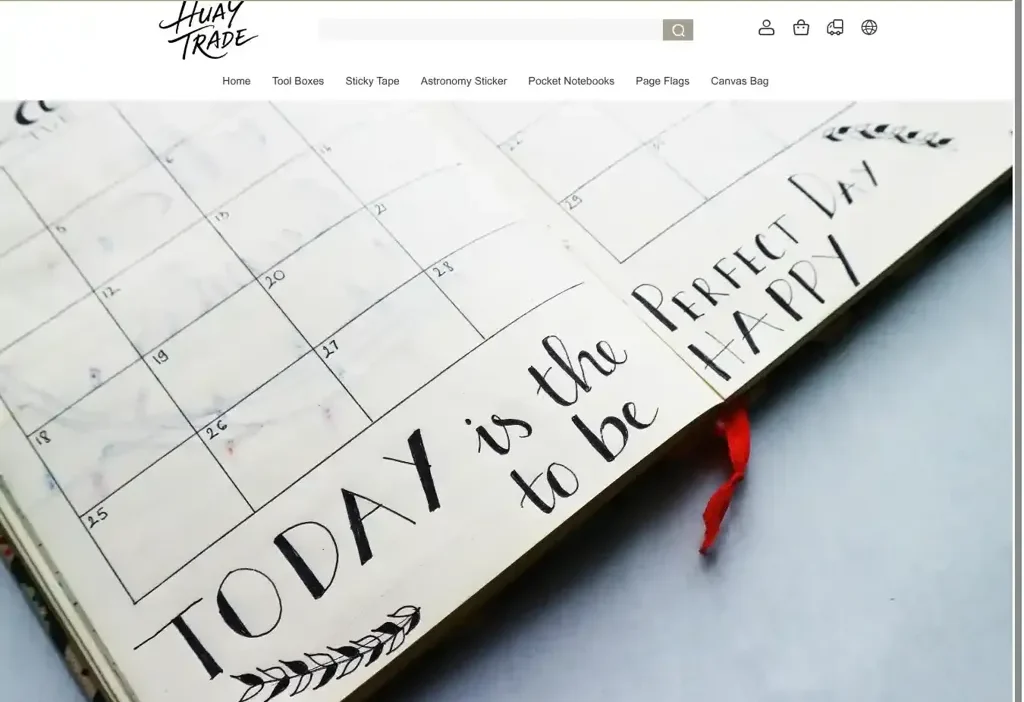 HUAY
TRADE
Home Tool Boxes Sticky Tape Astronomy Sticker Pocket Notebooks Page Flags Canvas Bag
6
12 13
18 19 20 21
25 26 27 28
29
TODAY is the
PERFECT DAY
to be
HAPPY